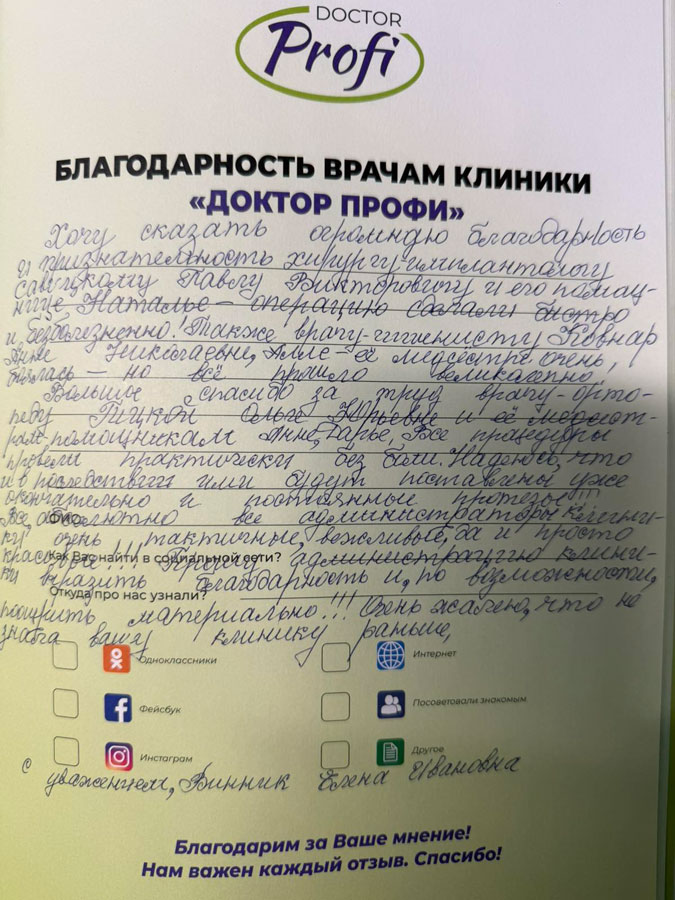 DOCTOR
Profi
БЛАГОДАРНОСТЬ ВРАЧАМ КЛИНИКИ
«ДОКТОР ПРОФИ»
Хочу сказать огромную благодарность
и признательность хирургу-имплантологу
Савицкому Павлу Викторовичу и его помощ-
нице Наталье – операцию сделали быстро
и безболезненно! Также врачу-гигиенисту
Анне Николаевне, Алле – её медсестре очень,
боялась – но всё прошло великолепно.
Большое спасибо за труд врачу-орто-
педу Ольге Юрьевне и её медсест-
рам-помощникам Анне, Дарье. Все процедуры
провели практически без боли. Надеюсь, что
и в последствии ими будут поставлены уже
окончательно и постоянные протезы!!!
Все абсолютно все администраторы клини-
ФИО:
ки очень тактичные, вежливые, да и просто
Как Вас найти в социальной сети?
красавицы!!! Прошу администрацию клини-
ки выразить благодарность и, по возможности,
Откуда про нас узнали?
поощрить материально!!! Очень жалею, что не
знала вашу клинику раньше,
Одноклассники
Интернет
Фейсбук
Посоветовали знакомым
Инстаграм
Другое
с уважением, Винник Елена Ивановна
Благодарим за Ваше мнение!
Нам важен каждый отзыв. Спасибо!